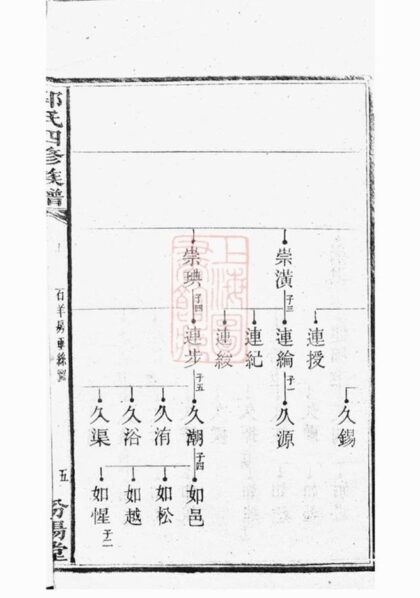 崇潢 子三
崇琠 子四
連授
連綸 子一
連紀
連
連步 子五
久錫
久源
久潮 子四
久洧
久浴
久渠
如邑
如松
如越
如惺 子二
郭氏四修族譜
石羊房
五
汾陽堂
上海圖書館藏